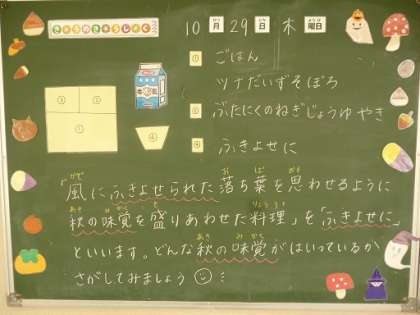 きょうのきゅうしょく
10月29日 木曜日
① ごはん
ツナだいずそぼろ
② ぶたにくのねぎじょうゆやき
④ ふきよせに
③ ②
①
④
「風にふきよせられた落ち葉を思わせるように
秋の味覚を盛りあわせた料理」を「ふきよせに」
といいます。どんな秋の味覚がはいっているか
さがしてみましょう